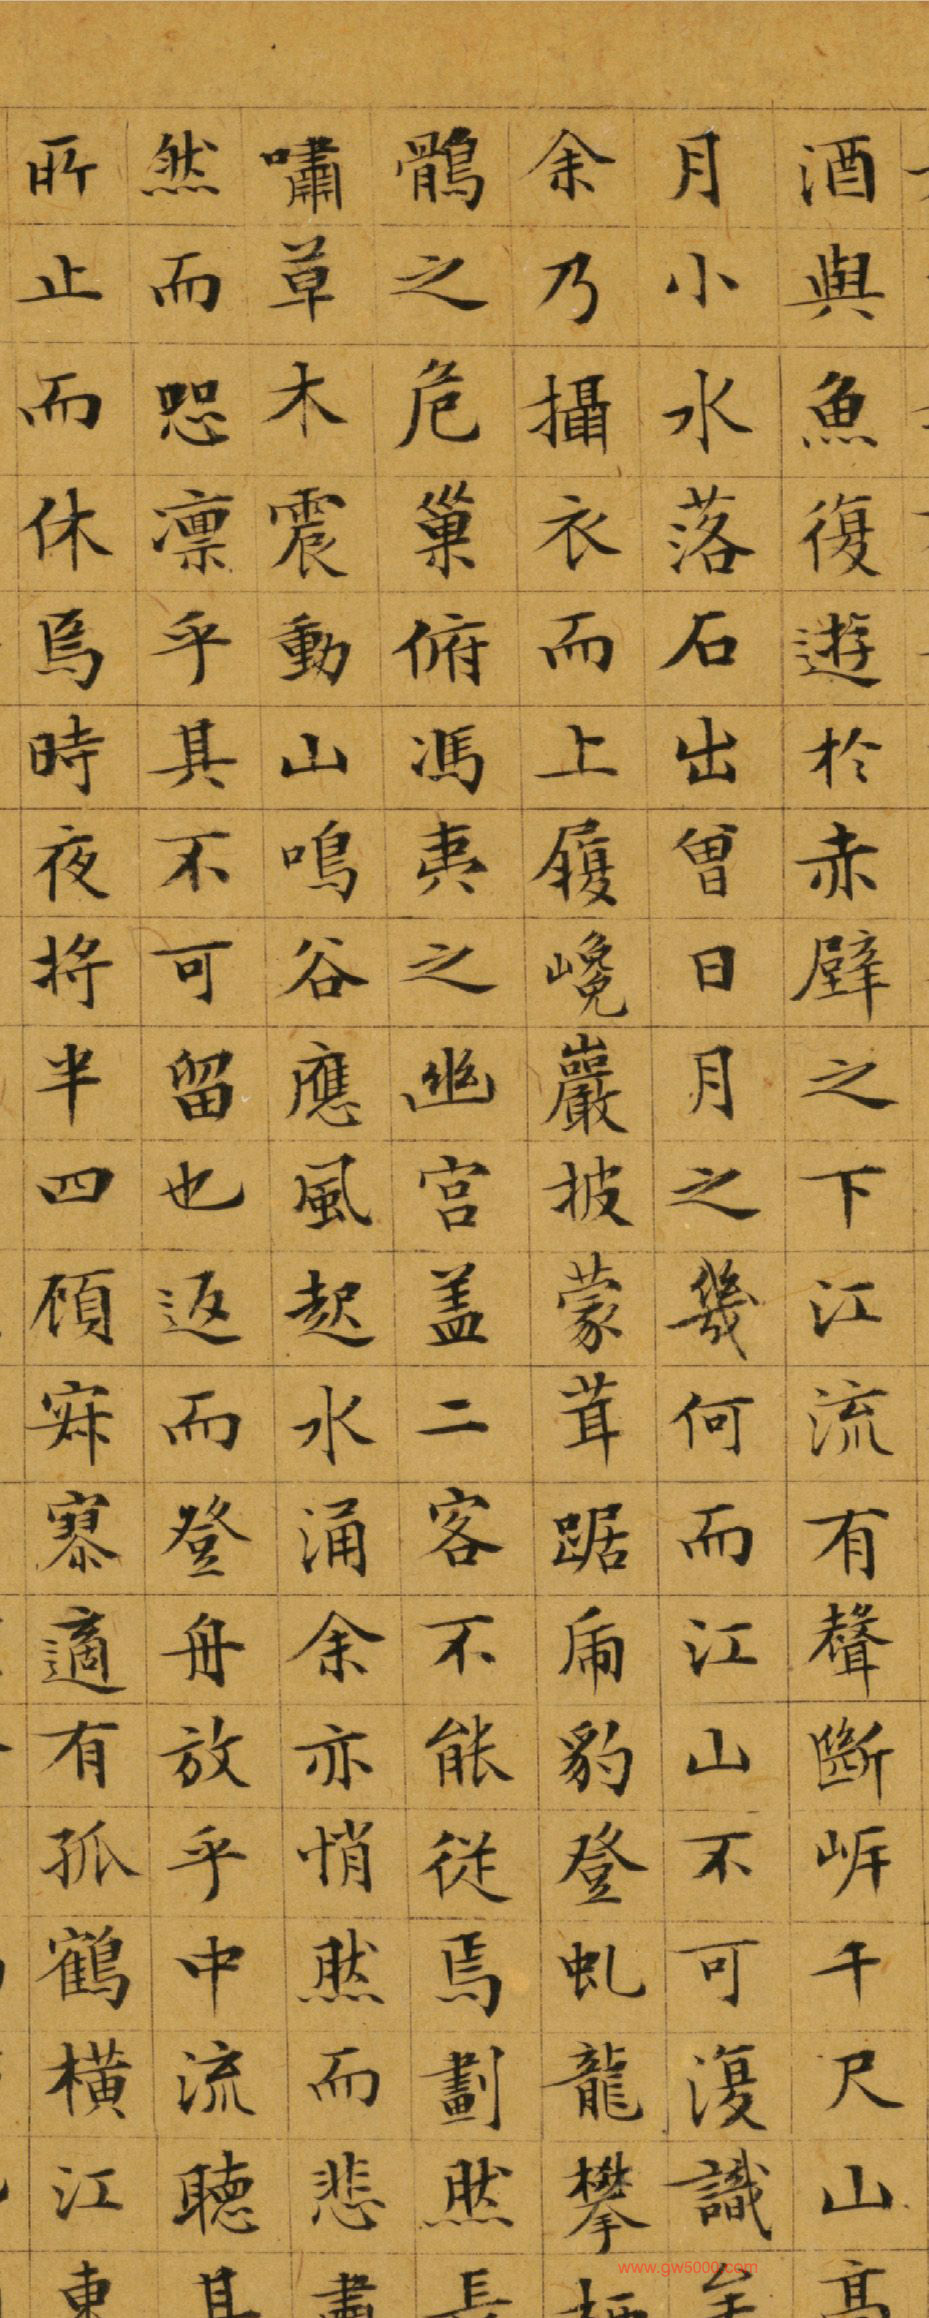 酒與魚復遊於赤壁之下江流有聲斷岸千尺山高
月小水落石出曾日月之幾何而江山不可復識
余乃攝衣而上履巉巖披蒙茸踞虎豹登虬龍攀
鶻之危巢俯馮夷之幽宮盖二客不能從焉劃然長
嘯草木震動山鳴谷應風起水涌余亦悄然而悲肅
然而恐凛乎其不可留也返而登舟放乎中流聽其
所止而休焉時夜將半四顧寂寥適有孤鶴橫江東
www.gw5000.com